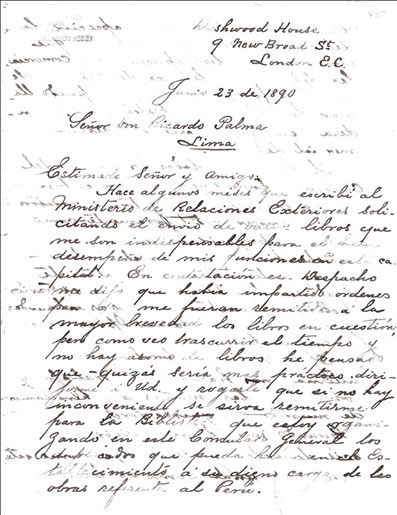 Wishwood House
9 New Broad St.
London E.C.
Junio 23 de 1890
Señor Don Ricardo Palma
Lima
Estimado Señor y amigo:
Hace algunos meses que escribí al
Ministerio de Relaciones Exteriores soli-
citando el envio de libros que
me son indispensables para el
desempeño de mis funciones en esta ca-
pital. En contestación ese Despacho
me dijo que había impartido ordenes
para me fueran remitidos a la
mayor brevedad los libros en cuestión,
pero como veo trascurrir el tiempo y
no hay asomo de libros he pensado
que quizás sería más práctico diri-
girme á Ud. y rogarle que si no hay
inconveniente se sirva remitirme
para la Biblioteca que estoy organi-
zando en este Consulado General los
que pueda Es-
tablecimiento a su digno cargo, de las
obras referentes al Perú.